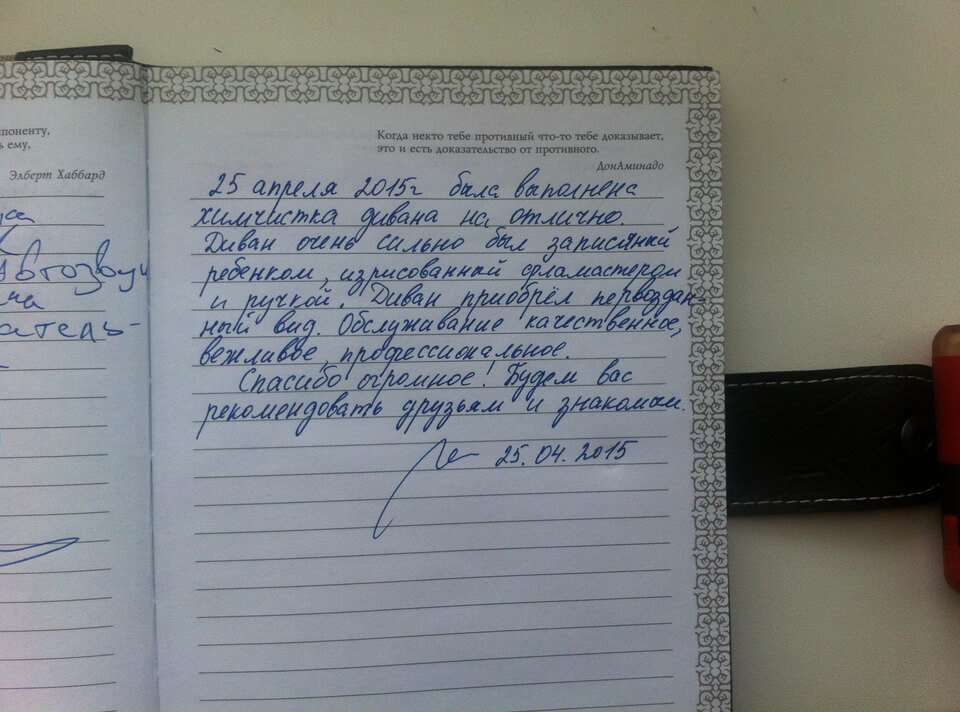 поненту,
ь ему,
Элберт Хаббард
Автозвук
атель-
Когда некто тебе противный что-то тебе доказывает,
это и есть доказательство от противного.
ДонАминадо
25 апреля 2015г была выполнена
химчистка дивана на отлично.
Диван очень сильно был записяный
ребенком, изрисованный фламастером
и ручкой. Диван приобрёл первоздан-
ный вид. Обслуживание качественное,
вежливое, профессиональное.
Спасибо огромное! Будем вас
рекомендовать друзьям и знакомым.
25.04.2015